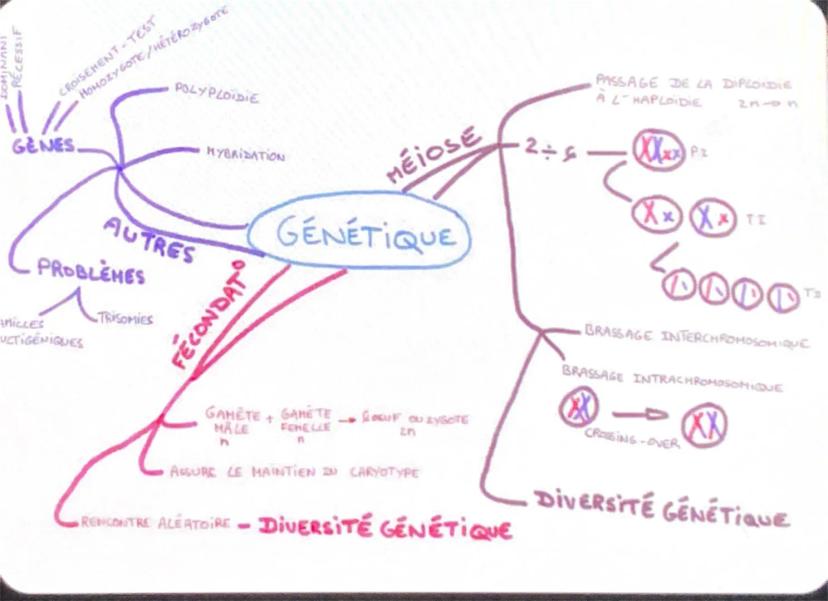 DOMINANT
RÉCESSIF
CROISEMENT-TEST
HOMOZYGOTE/HÉTÉROZYGOTE
GÈNES
POLYPLOÏDIE
HYBRIDATION
AUTRES
PROBLÈMES
TRISOMIES
GÉNÉTIQUE
MÉIOSE
PASSAGE DE LA DIPLOIDIE
À L'HAPLOÏDIE 2n → n
2 ÷
PI
TI
BRASSAGE INTERCHROMOSOMIQUE
BRASSAGE INTRACHROMOSOMIQUE
CROSSING-OVER
DIVERSITÉ GÉNÉTIQUE
FÉCONDAT°
GAMÈTE + GAMÈTE → OU ZYGOTE
MÂLE FEMELLE 2n
n n
ASSURE LE MAINTIEN DU CARYOTYPE
RENCONTRE ALÉATOIRE - DIVERSITÉ GÉNÉTIQUE